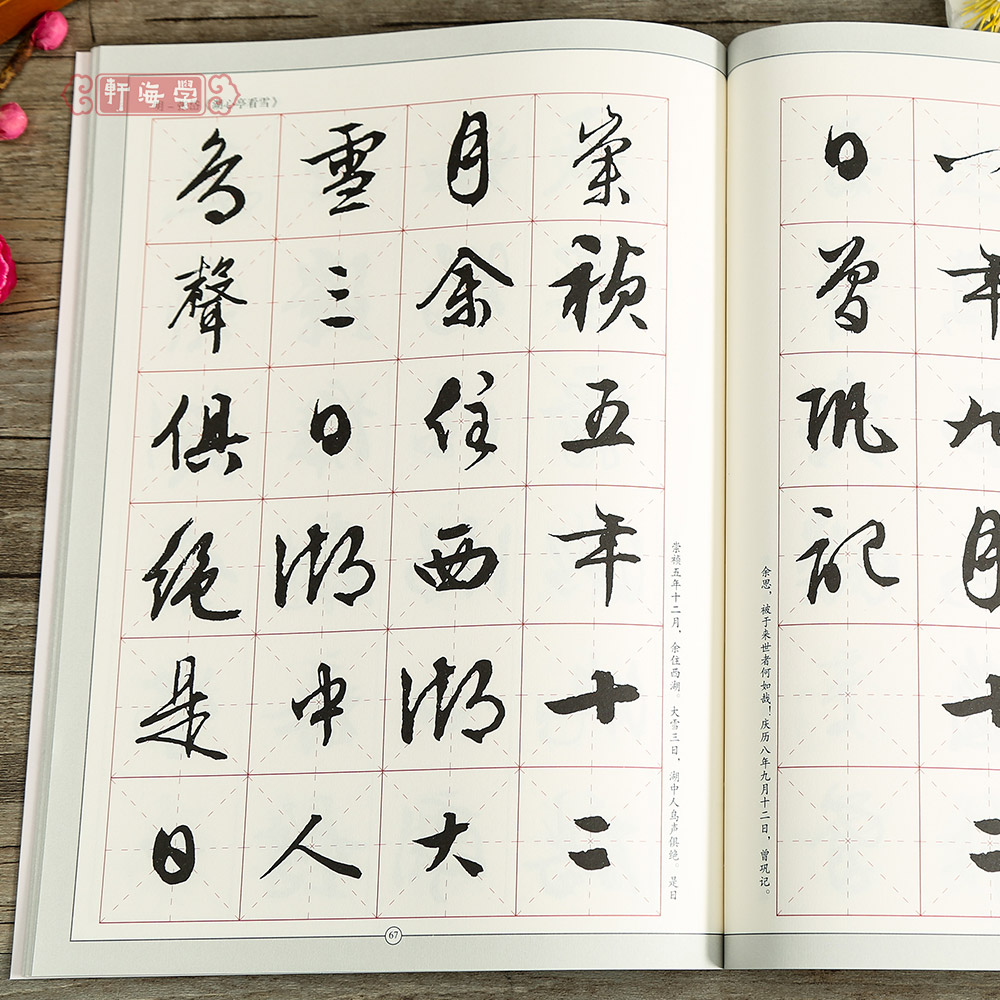 學海軒
湖心亭看雪》
年九月十二
日曾巩記
余思，被于来世者何如哉！庆历八年九月十二日，曾巩记。
崇禎五年十二
月余住西湖大
雪三日湖中人
鳥聲俱絕是日
崇祯五年十二月，余住西湖。大雪三日，湖中人鸟声俱绝。是日
67